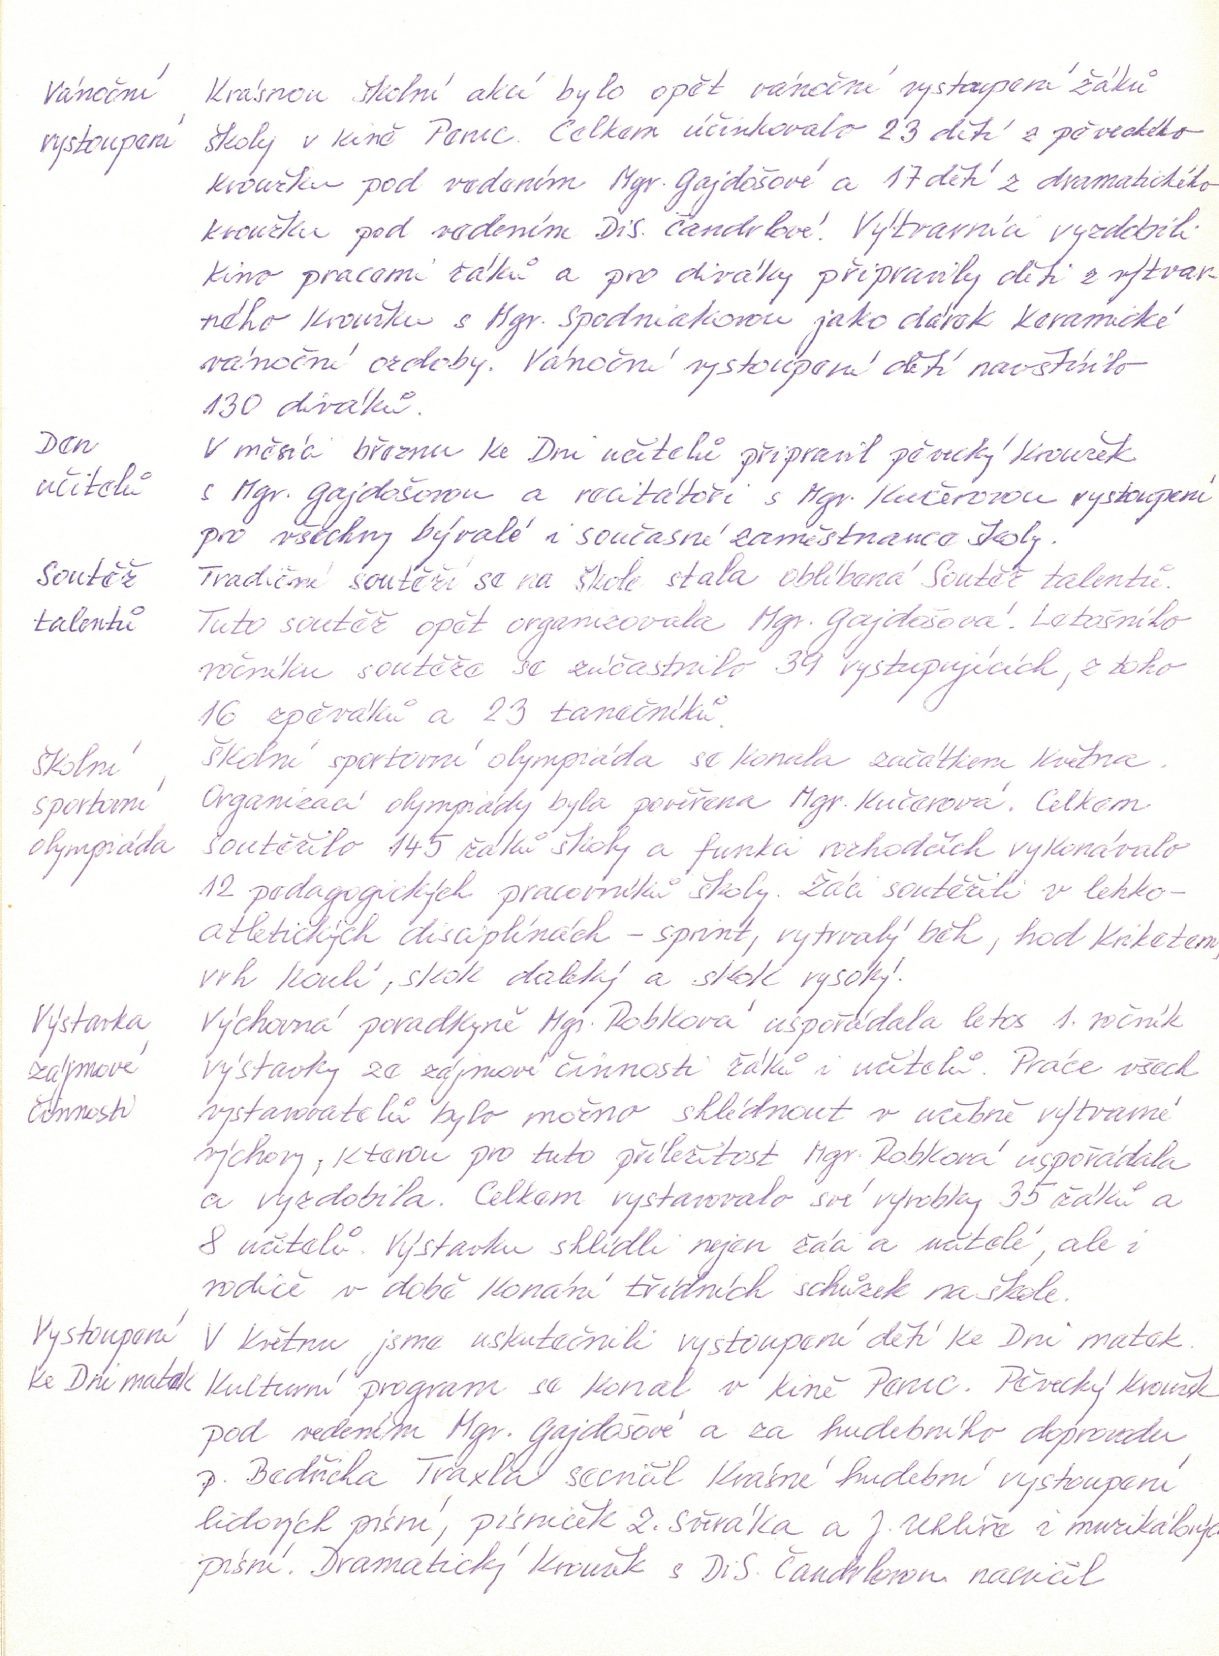 Vánoční
vystoupení
Krásnou školní akcí bylo opět vánoční vystoupení žáků
školy v kině Peruc. Celkem účinkovalo 23 dětí z pěveckého
kroužku pod vedením Mgr. Gajdošové a 17 dětí z dramatického
kroužku pod vedením DiS. Čandrlové. Výtvarníci vyzdobili
kino pracemi žáků a pro diváky připravily děti z výtvar-
ného kroužku s Mgr. Spodniakovou jako dárek keramické
vánoční ozdoby. Vánoční vystoupení dětí navštívilo
130 diváků.
Den
učitelů
V měsíci březnu ke Dni učitelů připravil pěvecký kroužek
s Mgr. Gajdošovou a recitátoři s Mgr. Kučerovou vystoupení
pro všechny bývalé i současné zaměstnance školy.
Soutěž
talentů
Tradiční soutěží se na škole stala oblíbená Soutěž talentů.
Tuto soutěž opět organizovala Mgr. Gajdošová. Letošního
ročníku soutěže se zúčastnilo 39 vystupujících, z toho
16 zpěváků a 23 tanečníků.
Školní
sportovní
olympiáda
Školní sportovní olympiáda se konala začátkem května.
Organizací olympiády byla pověřena Mgr. Kučerová. Celkem
soutěžilo 145 žáků školy a funkci rozhodčích vykonávalo
12 pedagogických pracovníků školy. Žáci soutěžili v lehko-
atletických disciplínách – sprint, vytrvalý běh, hod kriketem,
vrh koulí, skok daleký a skok vysoký.
Výstavka
zájmové
činnosti
Výchovná poradkyně Mgr. Robková uspořádala letos 1. ročník
výstavky ze zájmové činnosti žáků i učitelů. Práce všech
vystavovatelů bylo možno shlédnout v učebně výtvarné
výchovy, kterou pro tuto příležitost Mgr. Robková uspořádala
a vyzdobila. Celkem vystavovalo své výrobky 35 žáků a
8 učitelů. Výstavku shlédli nejen žáci a učitelé, ale i
rodiče v době konání třídních schůzek na škole.
Vystoupení
ke Dni matek
V květnu jsme uskutečnili vystoupení dětí ke Dni matek.
Kulturní program se konal v kině Peruc. Pěvecký kroužek
pod vedením Mgr. Gajdošové a za hudebního doprovodu
p. Bedřicha Traxla secvičil krásné hudební vystoupení
lidových písní, písniček Z. Svěráka a J. Uhlíře i muzikálových
písní. Dramatický kroužek s DiS. Čandrlovou nacvičil